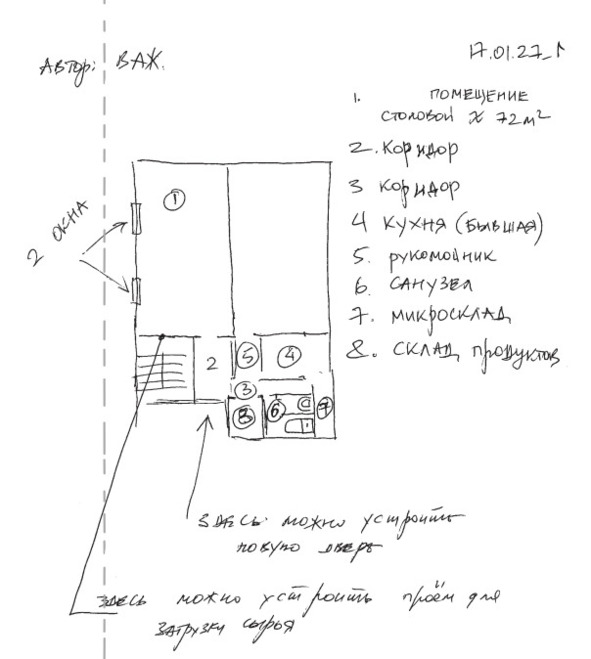 Автор: ВАЖ.
17.01.27_1
1. ПОМЕЩЕНИЕ
СТОЛОВОЙ ≈ 72 м²
2. Коридор
3 Коридор
4 КУХНЯ (БЫВШАЯ)
5. рукомойник
6. САНУЗЕЛ
7. МИКРОСКЛАД
8. СКЛАД продуктов
2 ОКНА
1
2
5
4
3
8
6
7
ЗДЕСЬ можно устроить
новую дверь
ЗДЕСЬ можно устроить проём для
ЗАГРУЗКИ СЫРЬЯ